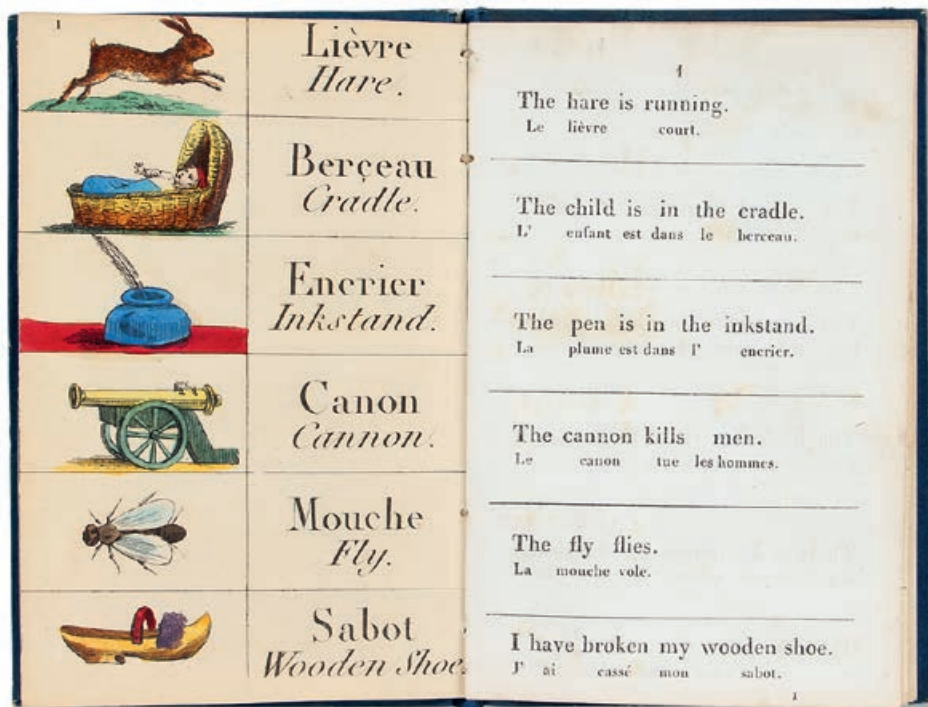 1
Lièvre
Hare.
Berçeau
Cradle.
Encrier
Inkstand.
Canon
Cannon.
Mouche
Fly.
Sabot
Wooden Shoe.
1
The hare is running.
Le lièvre court.
The child is in the cradle.
L' enfant est dans le berceau.
The pen is in the inkstand.
La plume est dans l' encrier.
The cannon kills men.
Le canon tue les hommes.
The fly flies.
La mouche vole.
I have broken my wooden shoe.
J' ai cassé mon sabot.
1